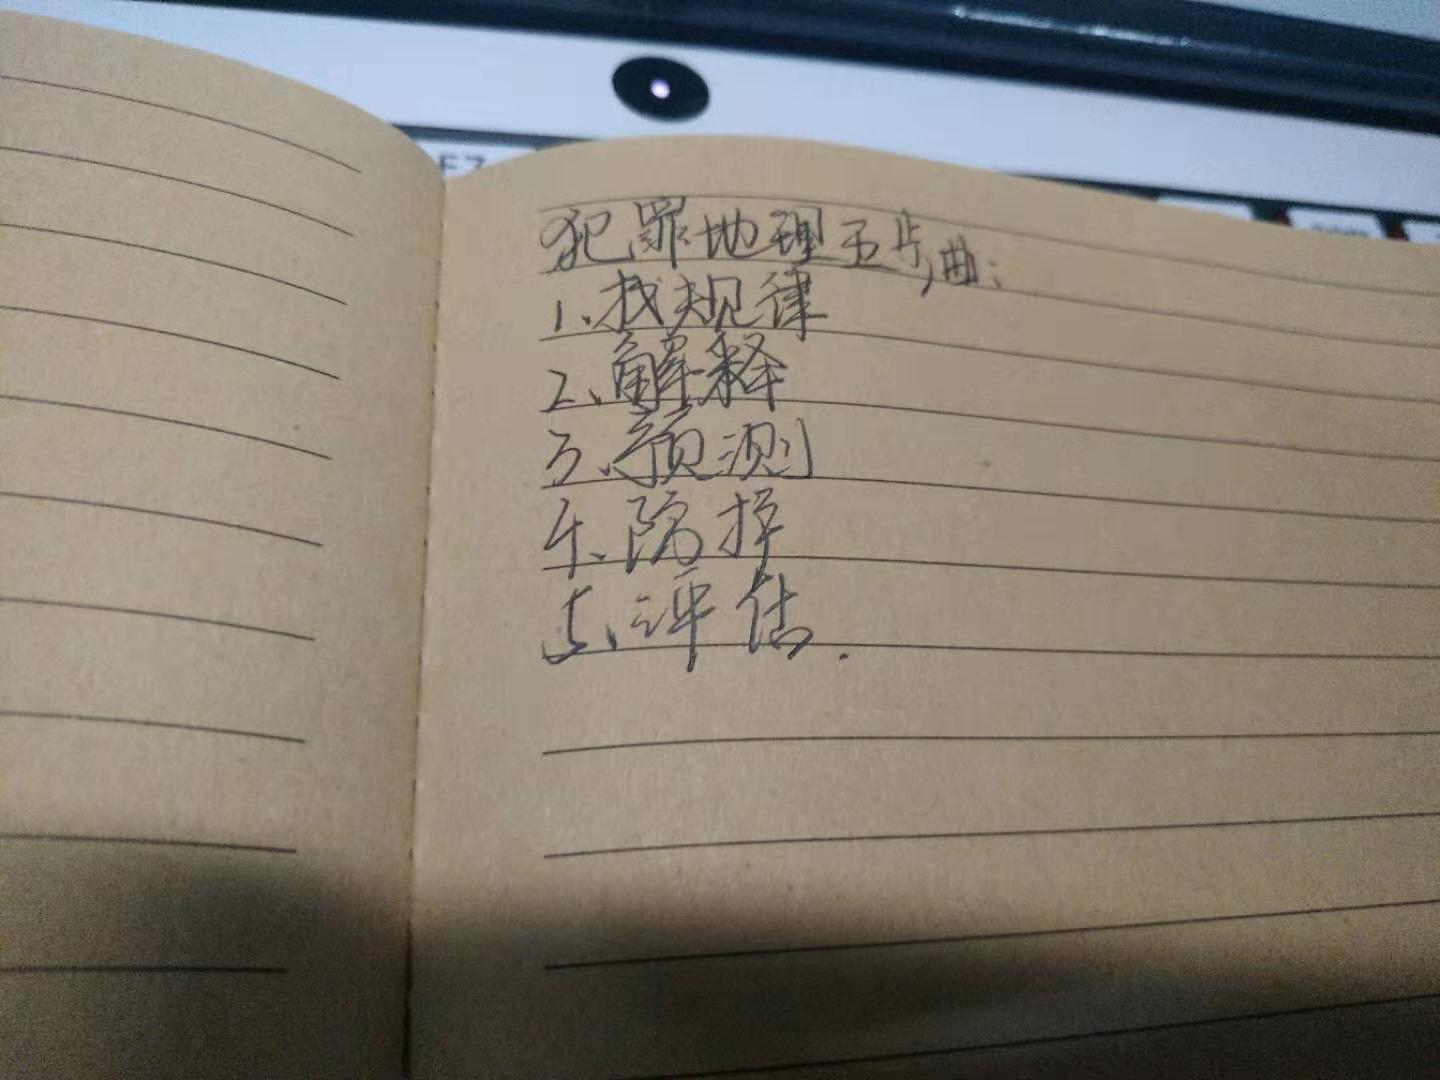 犯罪地理五步曲：
1、找规律
2、解释
3、预测
4、防控
5、评估.